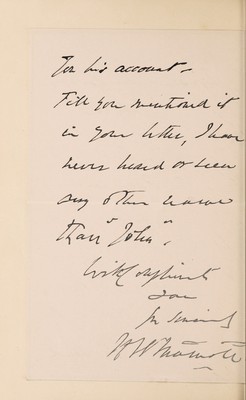 for his account –
Till you mentioned it
in your letter, I have
never heard or seen
any other name
than "John".
With Compliments
I am
yrs sincerely